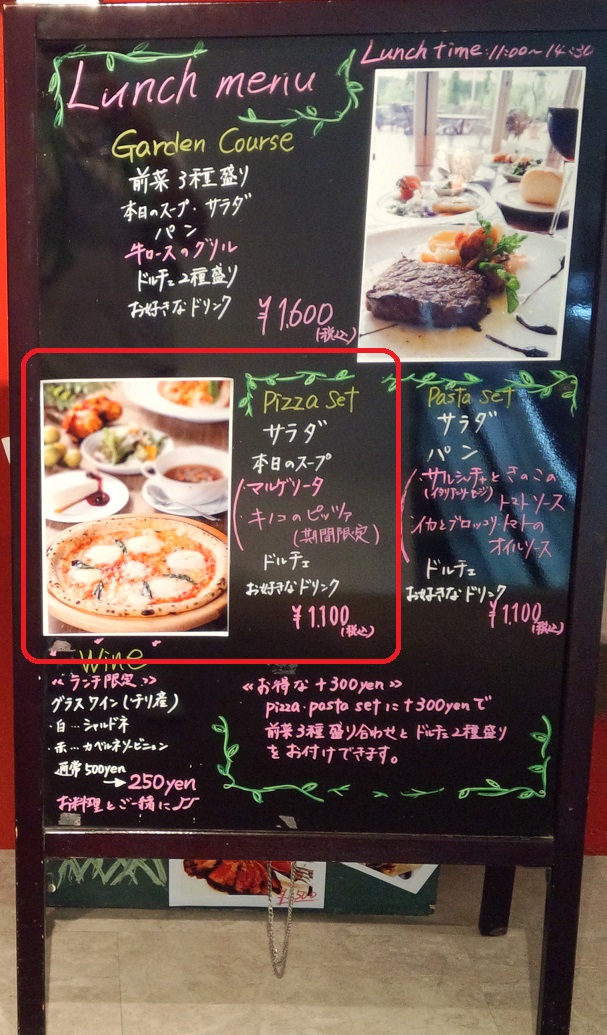 Lunch menu
Lunch time:11:00〜14:30
Garden Course
前菜3種盛り
本日のスープ・サラダ
パン
牛ロースのグリル
ドルチェ2種盛り
お好きなドリンク
¥1.600
(税込)
Pizza set
サラダ
本日のスープ
・マルゲリータ
・キノコのピッツァ
(期間限定)
ドルチェ
お好きなドリンク
¥1.100
(税込)
Pasta set
サラダ
パン
・サルシッチャときのこの
(イタリアンソーセージ)
トマトソース
・イカとブロッコリトマトの
オイルソース
ドルチェ
お好きなドリンク
¥1.100
(税込)
Wine
≪ランチ限定≫
グラスワイン(チリ産)
・白…シャルドネ
・赤…カベルネソービニョン
通常500yen
→250yen
お料理とご一緒に♫
≪お得な+300yen≫
pizza・pasta setに+300yenで
前菜3種盛り合わせとドルチェ2種盛り
をお付けできます。